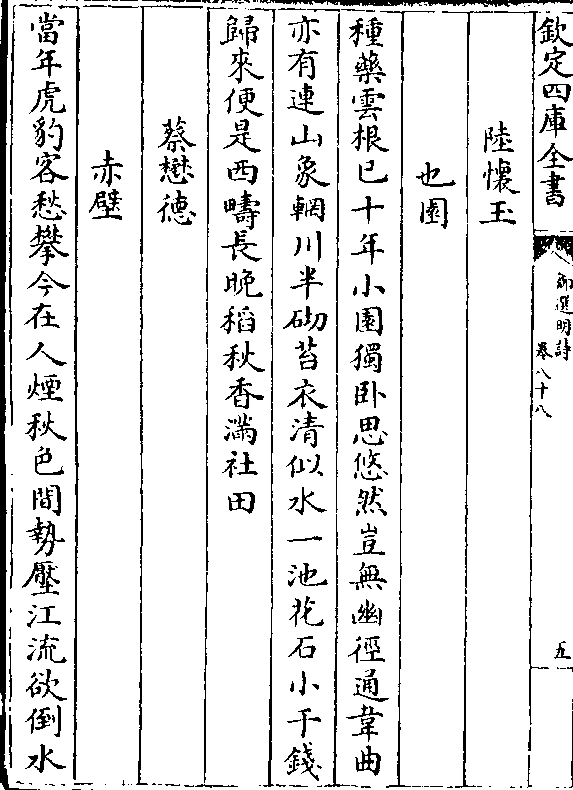 欽定四庫全書
御選明詩
卷八十八
五
陸懷玉
也園
種藥雲根已十年小園獨卧思悠然豈無幽徑通韋曲
亦有連山象輞川半砌苔衣清似水一池花石小于錢
歸來便是西疇長晚稻秋香滿社田
蔡懋德
赤壁
當年虎豹客愁攀今在人煙秋色間勢壓江流欲倒水